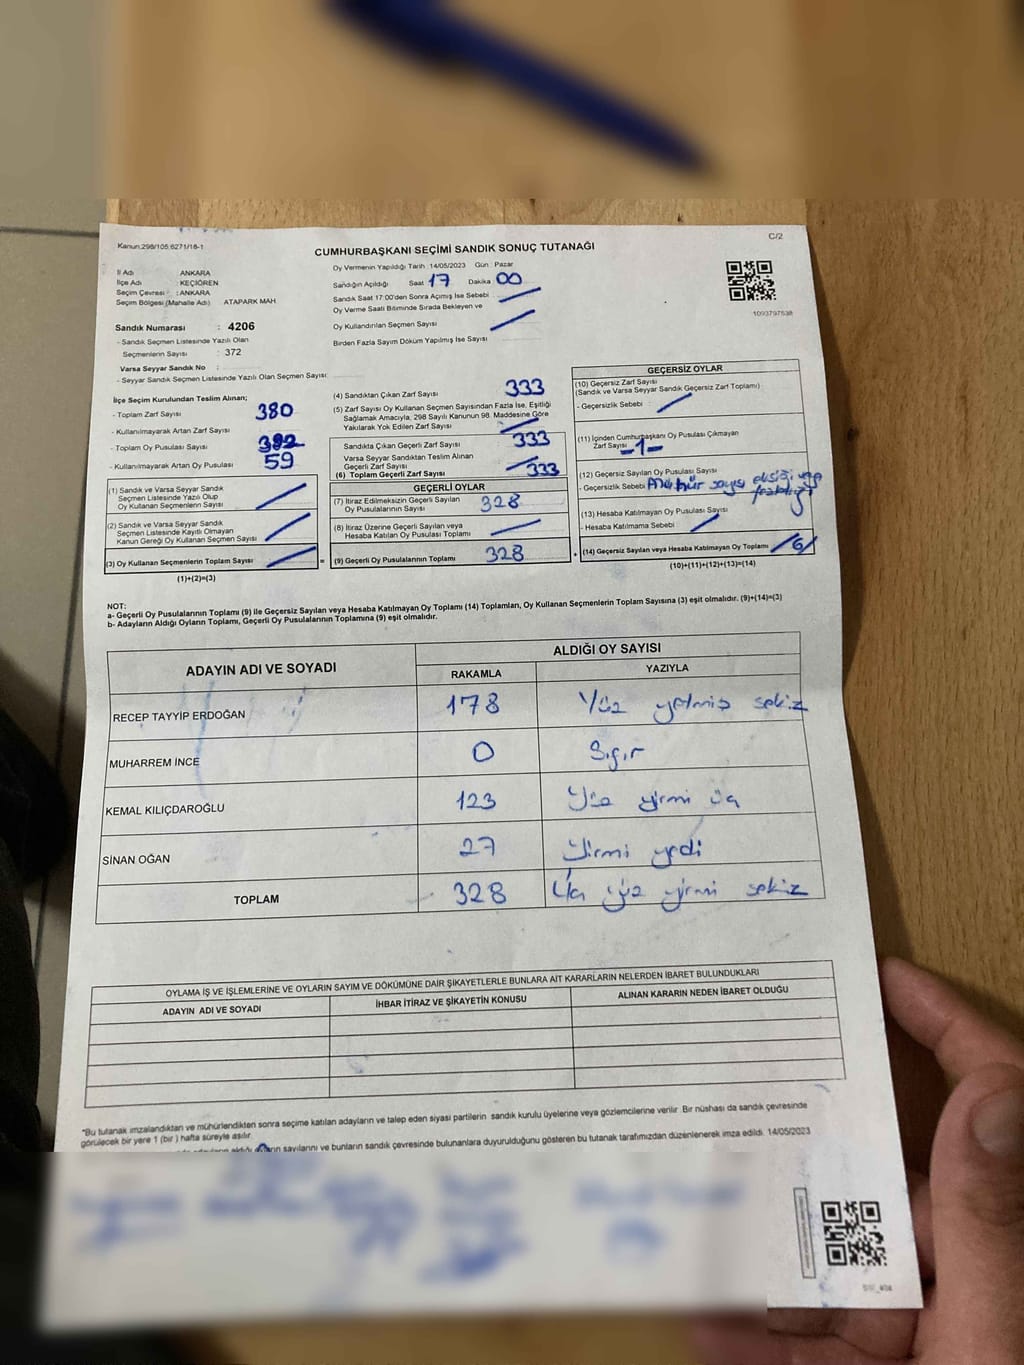 Kanun:298/105.6271/16-1
C/2
CUMHURBAŞKANI SEÇİMİ SANDIK SONUÇ TUTANAĞI
İl Adı : ANKARA
İlçe Adı : KEÇİÖREN
Seçim Çevresi : ANKARA
Seçim Bölgesi (Mahalle Adı) ATAPARK MAH.
Sandık Numarası : 4206
- Sandık Seçmen Listesinde Yazılı Olan
Seçmenlerin Sayısı : 372
Varsa Seyyar Sandık No :
- Seyyar Sandık Seçmen Listesinde Yazılı Olan Seçmen Sayısı:
Oy Vermenin Yapıldığı Tarih :14/05/2023 Gün : Pazar
Sandığın Açıldığı Saat 17 Dakika 00
Sandık Saat 17:00'den Sonra Açmış İse Sebebi :
Oy Verme Saati Bitiminde Sırada Bekleyen ve
Oy Kullandırılan Seçmen Sayısı
Birden Fazla Sayım Döküm Yapılmış İse Sayısı
1093797538
İlçe Seçim Kurulundan Teslim Alınan;
- Toplam Zarf Sayısı 380
- Kullanılmayarak Artan Zarf Sayısı
- Toplam Oy Pusulası Sayısı 392
- Kullanılmayarak Artan Oy Pusulası 59
(1) Sandık ve Varsa Seyyar Sandık
Seçmen Listesinde Yazılı Olup
Oy Kullanan Seçmenlerin Sayısı
(2) Sandık ve Varsa Seyyar Sandık
Seçmen Listesinde Kayıtlı Olmayan
Kanun Gereği Oy Kullanan Seçmen Sayısı
(3) Oy Kullanan Seçmenlerin Toplam Sayısı
(1)+(2)=(3)
(4) Sandıktan Çıkan Zarf Sayısı 333
(5) Zarf Sayısı Oy Kullanan Seçmen Sayısından Fazla İse, Eşitliği
Sağlamak Amacıyla, 298 Sayılı Kanunun 98. Maddesine Göre
Yakılarak Yok Edilen Zarf Sayısı
Sandıkta Çıkan Geçerli Zarf Sayısı 333
Varsa Seyyar Sandıktan Teslim Alınan
Geçerli Zarf Sayısı
(6) Toplam Geçerli Zarf Sayısı 333
GEÇERLİ OYLAR
(7) İtiraz Edilmeksizin Geçerli Sayılan
Oy Pusulalarının Toplamı 328
(8) İtiraz Üzerine Geçerli Sayılan veya
Hesaba Katılan Oy Pusulası Toplamı
= (9) Geçerli Oy Pusulalarının Toplamı 328 +
GEÇERSİZ OYLAR
(10) Geçersiz Zarf Sayısı
(Sandık ve Varsa Seyyar Sandık Geçersiz Zarf Toplamı)
- Geçersizlik Sebebi :
(11) İçinden Cumhurbaşkanı Oy Pusulası Çıkmayan
Zarf Sayısı -1-
(12) Geçersiz Sayılan Oy Pusulası Sayısı
- Geçersizlik Sebebi Mühür sayısı eksiği veya
fazlalığı
(13) Hesaba Katılmayan Oy Pusulası Sayısı
- Hesaba Katılmama Sebebi
(14) Geçersiz Sayılan veya Hesaba Katılmayan Oy Toplamı /6/
(10)+(11)+(12)+(13)=(14)
NOT:
a- Geçerli Oy Pusulalarının Toplamı (9) ile Geçersiz Sayılan veya Hesaba Katılmayan Oy Toplamı (14) Toplamları, Oy Kullanan Seçmenlerin Toplam Sayısına (3) eşit olmalıdır. (9)+(14)=(3)
b- Adayların Aldığı Oyların Toplamı, Geçerli Oy Pusulalarının Toplamına (9) eşit olmalıdır.
ADAYIN ADI VE SOYADI
ALDIĞI OY SAYISI
RAKAMLA YAZIYLA
RECEP TAYYİP ERDOĞAN 178 Yüz yetmiş sekiz
MUHARREM İNCE 0 Sıfır
KEMAL KILIÇDAROĞLU 123 Yüz yirmi üç
SİNAN OĞAN 27 Yirmi yedi
TOPLAM 328 Üç yüz yirmi sekiz
OYLAMA İŞ VE İŞLEMLERİNE VE OYLARIN SAYIM VE DÖKÜMÜNE DAİR ŞİKAYETLERLE BUNLARA AİT KARARLARIN NELERDEN İBARET BULUNDUKLARI
ADAYIN ADI VE SOYADI İHBAR İTİRAZ VE ŞİKAYETİN KONUSU ALINAN KARARIN NEDEN İBARET OLDUĞU
*Bu tutanak imzalandıktan ve mühürlendikten sonra seçime katılan adayların ve talep eden siyasi partilerin sandık kurulu üyelerine veya gözlemcilerine verilir. Bir nüshası da sandık çevresinde
görülecek bir yere 1 (bir ) hafta süreyle asılır.
sayılarını ve bunların sandık çevresinde bulunanlara duyurulduğunu gösteren bu tutanak tarafımızdan düzenlenerek imza edildi. 14/05/2023